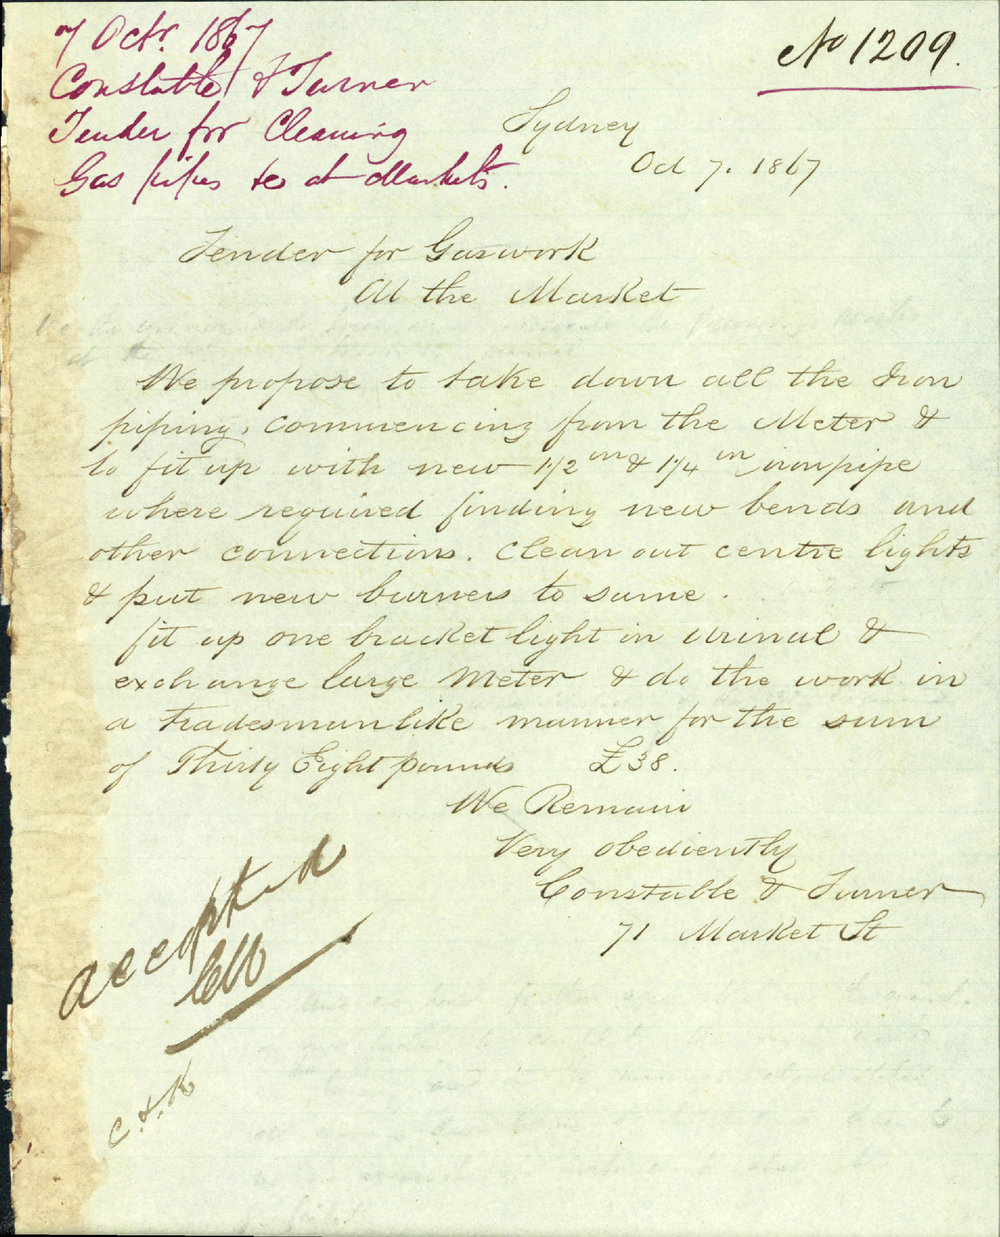 7 Octr. 1867
Constable & Turner
Tender for Cleaning
Gas pipes &c at Markets.
No 1209.
Sydney
Oct 7. 1867
Tender for Gaswork
At the Market
We propose to take down all the Iron
piping, commencing from the Meter &
to fit up with new 1 1/2 in & 1 1/4 in iron pipe
where required finding new bends and
other connections. Clean out centre lights
& put new burners to same.
fit up one bracket light in urinal &
exchange large Meter & do the work in
a tradesmanlike manner for the sum
of Thirty Eight pounds £38.
We Remain
Very obediently
Constable & Turner
71 Market St
accepted